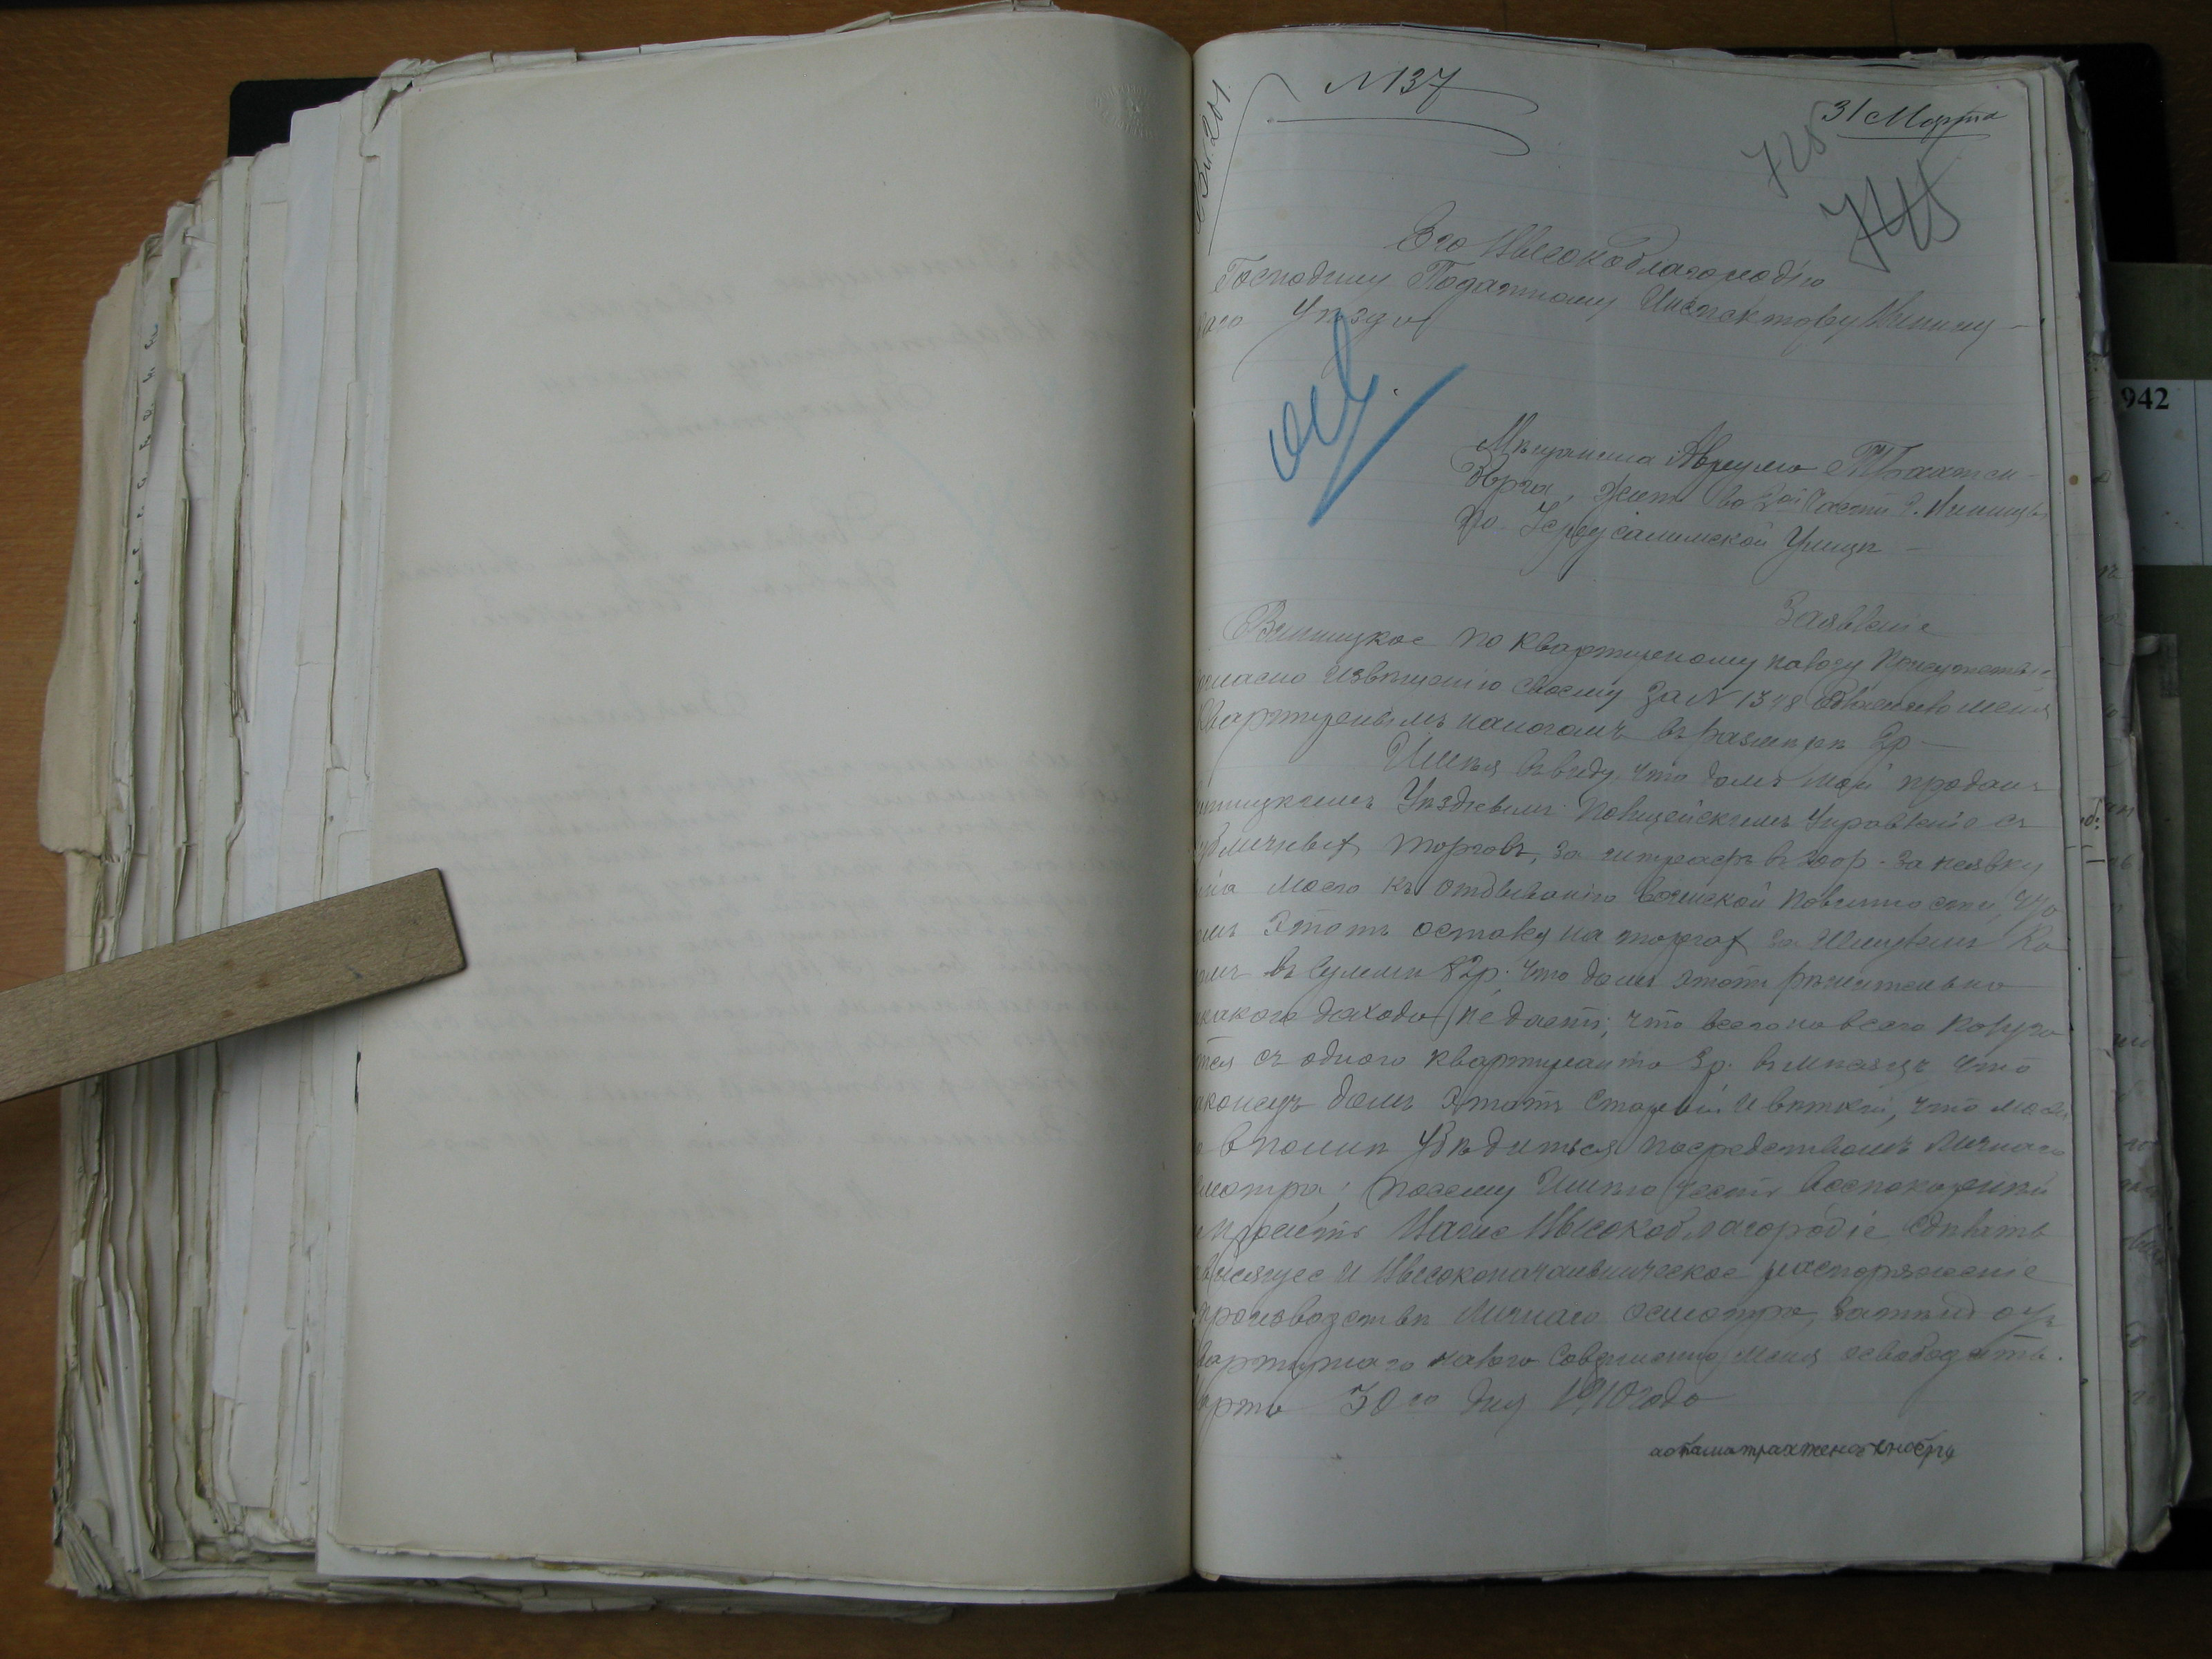 Вх. 201
N 137
31 Марта
725
745
Его Высокоблагородію
Господину Податному Инспектору Винниц–
каго Уѣзда
942
Мѣщанина Аврума Трахтен–
берга, жит. во 2ой части г. Винницы
по Іерусалимской Улицѣ –
Заявленіе
Винницкое по квартирному налогу Присутствіе
согласно извѣщенію своему за N 1398 обложило меня
квартирнымъ налогомъ въ размѣрѣ 2р. –
Имѣя въ виду, что домъ мой проданъ
Винницкимъ Уѣзднымъ Полицейскимъ Управленіе съ
публичныхъ торговъ, за штрафъ въ 300р. за неявку
сына моего къ отбыванію воинской повинности, что
домъ этотъ остался на торгахъ за
въ суммѣ 82р. что домъ этотъ рѣшительно
никакого дохода не даетъ, что всего на всего получа
ется съ одного квартиранта 3р. въ мѣсяцъ что
наконецъ домъ этотъ старый и ветхій, что можно
вполнѣ убѣдиться посредствомъ личнаго
осмотра, посему имѣю честь
просить Ваше Высокоблагородіе сдѣлать
зависящее и Высоконачальническое распоряженіе
производствѣ личнаго осмотра, затѣмъ отъ
квартирнаго налога совершенно меня освободить.
Марта 30го дня 1910 года